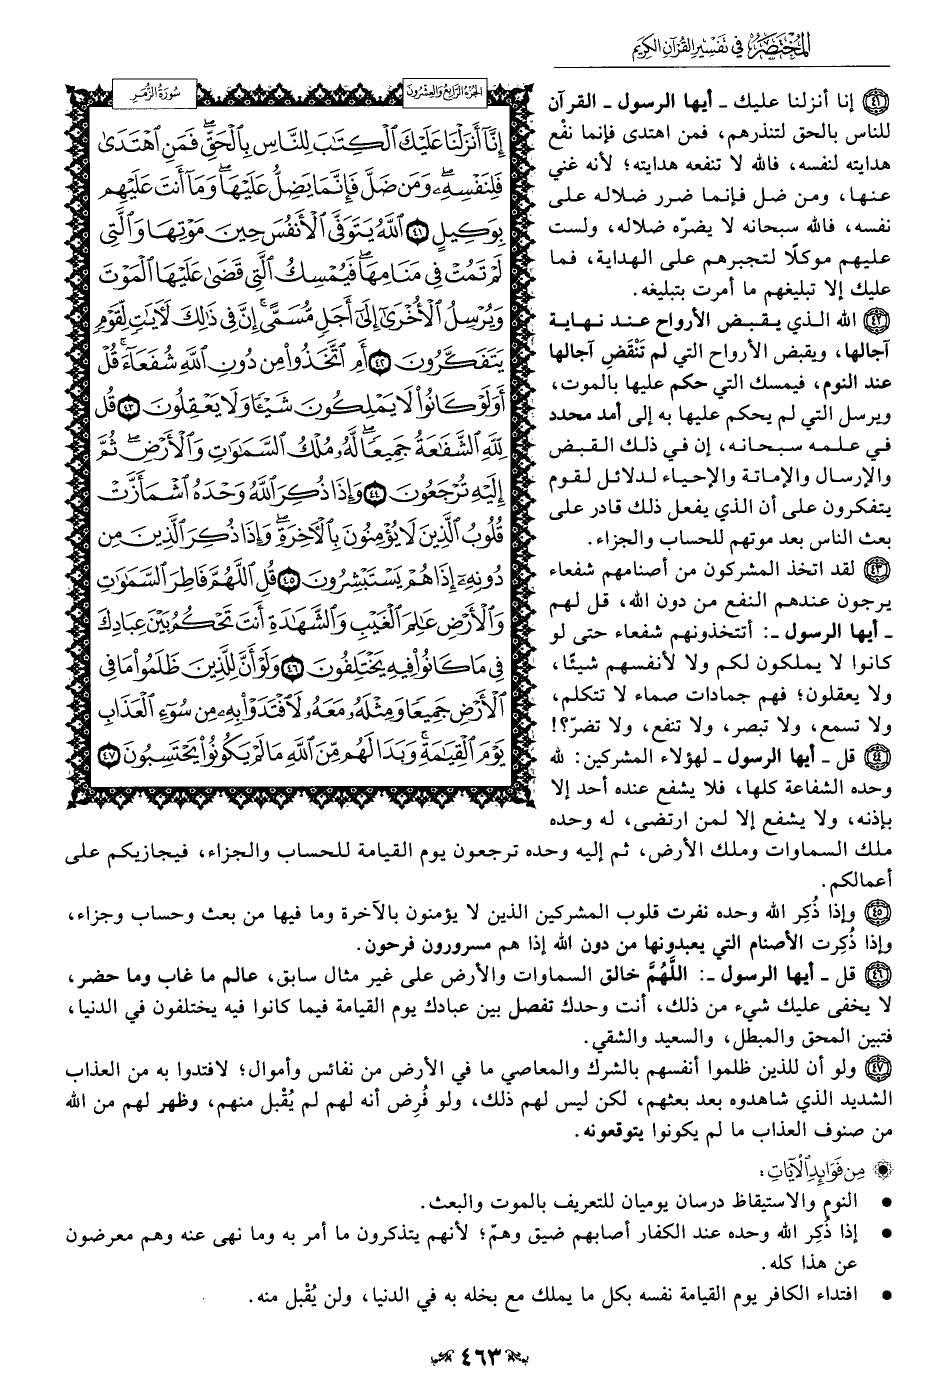 المختصر في تفسير القرآن الكريم
الجزء الرابع والعشرون
سورة الزمر
إِنَّآ أَنزَلۡنَا عَلَيۡكَ ٱلۡكِتَٰبَ لِلنَّاسِ بِٱلۡحَقِّۖ فَمَنِ ٱهۡتَدَىٰ
فَلِنَفۡسِهِۦۖ وَمَن ضَلَّ فَإِنَّمَا يَضِلُّ عَلَيۡهَاۖ وَمَآ أَنتَ عَلَيۡهِم
بِوَكِيلٍ ٤١ ٱللَّهُ يَتَوَفَّى ٱلۡأَنفُسَ حِينَ مَوۡتِهَا وَٱلَّتِي
لَمۡ تَمُتۡ فِي مَنَامِهَاۖ فَيُمۡسِكُ ٱلَّتِي قَضَىٰ عَلَيۡهَا ٱلۡمَوۡتَ
وَيُرۡسِلُ ٱلۡأُخۡرَىٰٓ إِلَىٰٓ أَجَلٖ مُّسَمًّىۚ إِنَّ فِي ذَٰلِكَ لَأٓيَٰتٖ لِّقَوۡمٖ
يَتَفَكَّرُونَ ٤٢ أَمِ ٱتَّخَذُواْ مِن دُونِ ٱللَّهِ شُفَعَآءَۚ قُلۡ
أَوَلَوۡ كَانُواْ لَا يَمۡلِكُونَ شَيۡـٔٗا وَلَا يَعۡقِلُونَ ٤٣ قُل
لِّلَّهِ ٱلشَّفَٰعَةُ جَمِيعٗاۖ لَّهُۥ مُلۡكُ ٱلسَّمَٰوَٰتِ وَٱلۡأَرۡضِۖ ثُمَّ
إِلَيۡهِ تُرۡجَعُونَ ٤٤ وَإِذَا ذُكِرَ ٱللَّهُ وَحۡدَهُ ٱشۡمَأَزَّتۡ
قُلُوبُ ٱلَّذِينَ لَا يُؤۡمِنُونَ بِٱلۡأٓخِرَةِۖ وَإِذَا ذُكِرَ ٱلَّذِينَ مِن
دُونِهِۦٓ إِذَا هُمۡ يَسۡتَبۡشِرُونَ ٤٥ قُلِ ٱللَّهُمَّ فَاطِرَ ٱلسَّمَٰوَٰتِ
وَٱلۡأَرۡضِ عَٰلِمَ ٱلۡغَيۡبِ وَٱلشَّهَٰدَةِ أَنتَ تَحۡكُمُ بَيۡنَ عِبَادِكَ
فِي مَا كَانُواْ فِيهِ يَخۡتَلِفُونَ ٤٦ وَلَوۡ أَنَّ لِلَّذِينَ ظَلَمُواْ مَا فِي
ٱلۡأَرۡضِ جَمِيعٗا وَمِثۡلَهُۥ مَعَهُۥ لَٱفۡتَدَوۡاْ بِهِۦ مِن سُوٓءِ ٱلۡعَذَابِ
يَوۡمَ ٱلۡقِيَٰمَةِۚ وَبَدَا لَهُم مِّنَ ٱللَّهِ مَا لَمۡ يَكُونُواْ يَحۡتَسِبُونَ ٤٧
٤١ إنا أنزلنا عليك ـ أيها الرسول ـ القرآن
للناس بالحق لتنذرهم، فمن اهتدى فإنما نفْع
هدايته لنفسه، فالله لا تنفعه هدايته؛ لأنه غني
عنها، ومن ضل فإنما ضرر ضلاله على
نفسه، فالله سبحانه لا يضرّه ضلاله، ولست
عليهم موكلًا لتجبرهم على الهداية، فما
عليك إلا تبليغهم ما أمرت بتبليغه.
٤٢ الله الذي يقبض الأرواح عند نهاية
آجالها، ويقبض الأرواح التي لم تَنْقَضِ آجالها
عند النوم، فيمسك التي حكم عليها بالموت،
ويرسل التي لم يحكم عليها به إلى أمد محدد
في علمه سبحانه، إن في ذلك القبض
والإرسال والإماتة والإحياء لدلائل لقوم
يتفكرون على أن الذي يفعل ذلك قادر على
بعث الناس بعد موتهم للحساب والجزاء.
٤٣ لقد اتخذ المشركون من أصنامهم شفعاء
يرجون عندهم النفع من دون الله، قل لهم
ـ أيها الرسول ـ: أتتخذونهم شفعاء حتى لو
كانوا لا يملكون لكم ولا لأنفسهم شيئًا،
ولا يعقلون؛ فهم جمادات صماء لا تتكلم،
ولا تسمع، ولا تبصر، ولا تنفع، ولا تضرّ؟!
٤٤ قل ـ أيها الرسول ـ لهؤلاء المشركين: لله
وحده الشفاعة كلها، فلا يشفع عنده أحد إلا
بإذنه، ولا يشفع إلا لمن ارتضى، له وحده
ملك السماوات وملك الأرض، ثم إليه وحده ترجعون يوم القيامة للحساب والجزاء، فيجازيكم على
أعمالكم.
٤٥ وإذا ذُكِر الله وحده نفرت قلوب المشركين الذين لا يؤمنون بالآخرة وما فيها من بعث وحساب وجزاء،
وإذا ذُكِرت الأصنام التي يعبدونها من دون الله إذا هم مسرورون فرحون.
٤٦ قل ـ أيها الرسول ـ: اللَّهُمَّ خالق السماوات والأرض على غير مثال سابق، عالم ما غاب وما حضر،
لا يخفى عليك شيء من ذلك، أنت وحدك تفصل بين عبادك يوم القيامة فيما كانوا فيه يختلفون في الدنيا،
فتبين المحق والمبطل، والسعيد والشقي.
٤٧ ولو أن للذين ظلموا أنفسهم بالشرك والمعاصي ما في الأرض من نفائس وأموال؛ لافتدوا به من العذاب
الشديد الذي شاهدوه بعد بعثهم، لكن ليس لهم ذلك، ولو فُرِض أنه لهم لم يُقْبل منهم، وظهر لهم من الله
من صنوف العذاب ما لم يكونوا يتوقعونه.
من فوائد الآيات:
• النوم والاستيقاظ درسان يوميان للتعريف بالموت والبعث.
• إذا ذُكِر الله وحده عند الكفار أصابهم ضيق وهمّ؛ لأنهم يتذكرون ما أمر به وما نهى عنه وهم معرضون
عن هذا كله.
• افتداء الكافر يوم القيامة نفسه بكل ما يملك مع بخله به في الدنيا، ولن يُقْبل منه.
٤٦٣